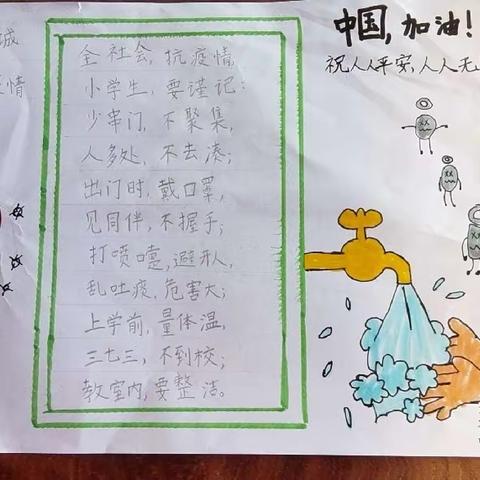 城
情
全社会,抗疫情,
小学生,要谨记:
少串门,不聚集,
人多处,不去凑;
出门时,戴口罩,
见同伴,不握手;
打喷嚏,避开人,
乱吐痰,危害大;
上学前,量体温,
三七三,不到校;
教室内,要整洁。
中国,加油!
祝人人平安,人人无